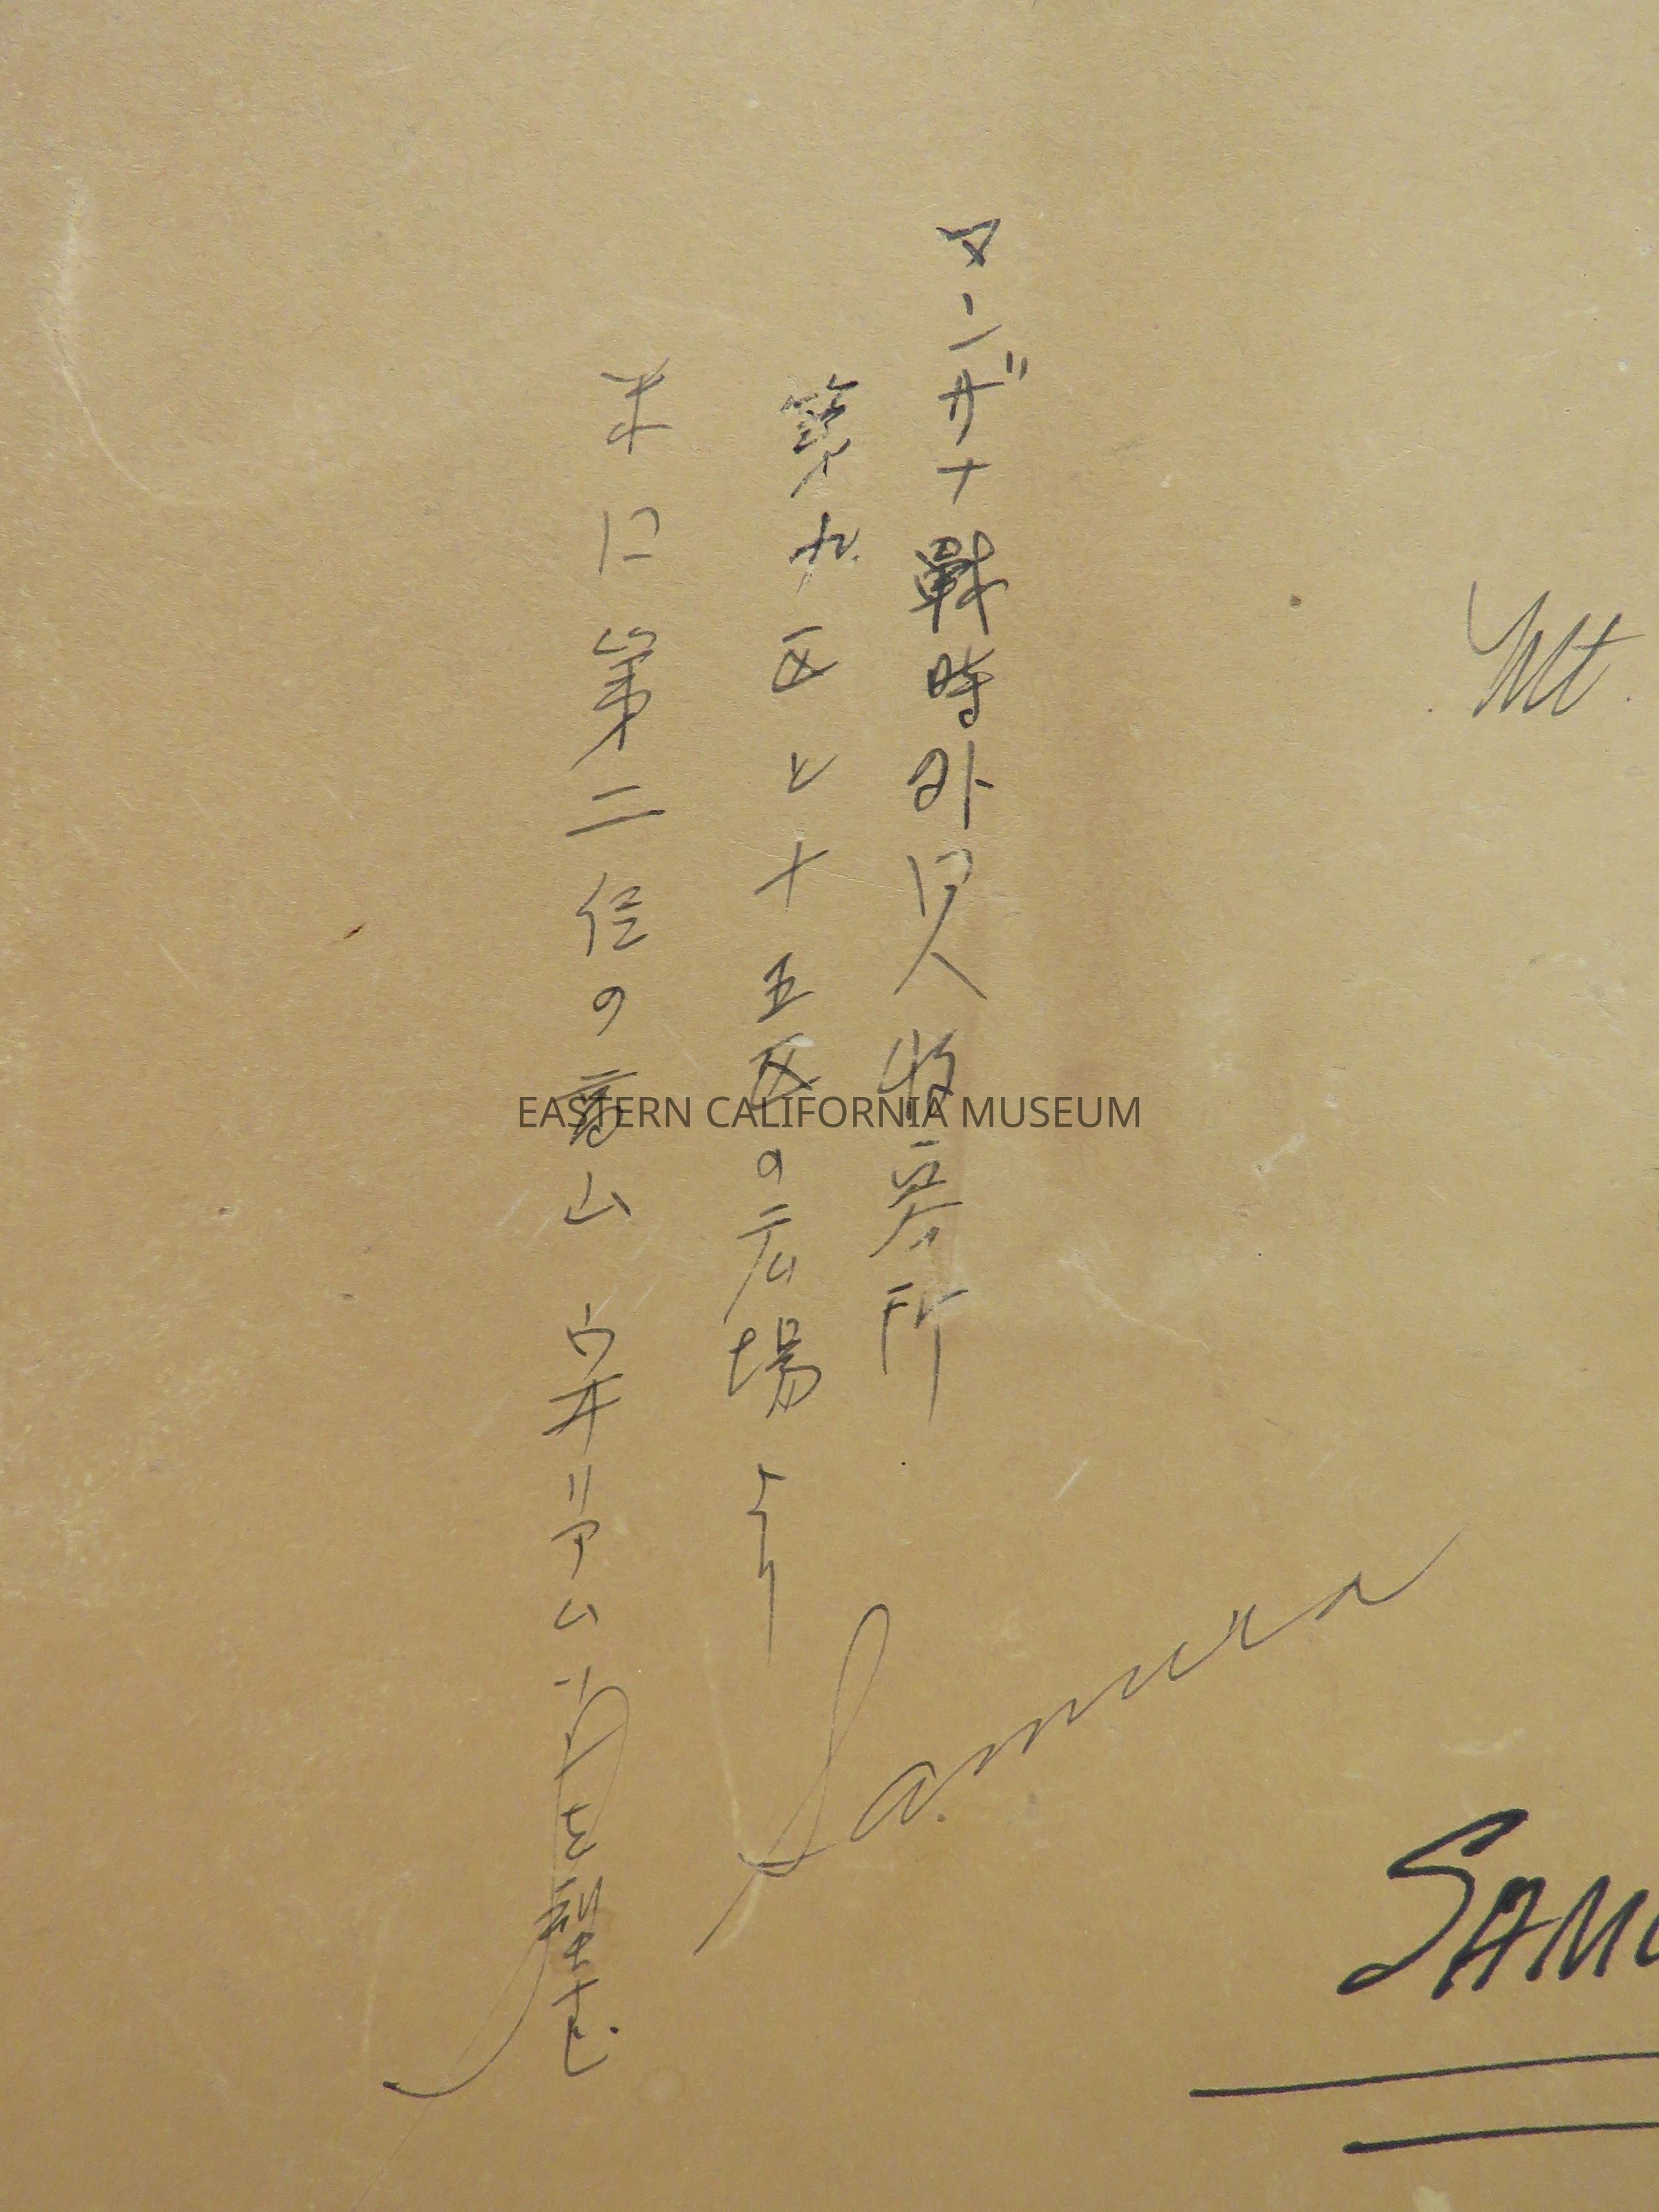 マンザナ戦時外国人收容所
第九区と十五区の広場より
米に第二位の高山 ウ井リアム
を望む
Mt.
Samura
SAMU
EASTERN CALIFORNIA MUSEUM